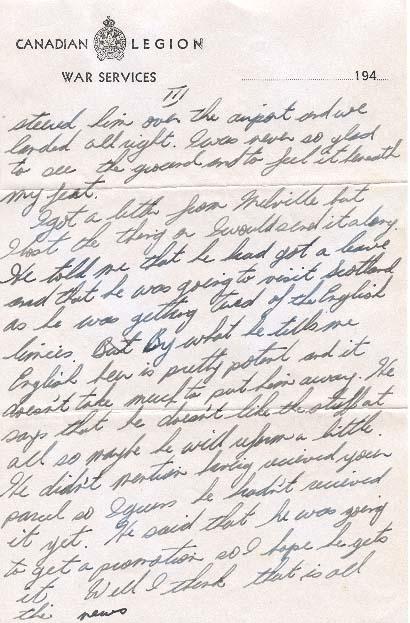 CANADIAN LEGION
WAR SERVICES
194
III
steered him over the airport and we
landed all right. I was never so glad
to see the ground and to feel it beneath
my feat.
I got a letter from Melville but
I lost the thing or I would send it along.
He told me that he had got a leave
and that he was going to visit Scotland
as he was getting tired of the English
limeis. But By what he tells me
English beer is pretty potent and it
doesn't take much to put him away. He
says that he doesn't like the stuff at
all so maybe he will reform a little.
He didn't mention having recieved your
parcel so I guess he hadn't recieved
it yet. He said that he was going
to get a promotion so I hope he gets
it. Well I think that is all
the news